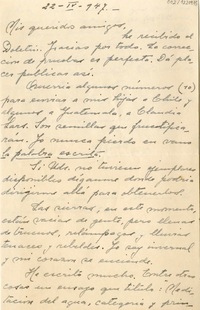 22-IV-947.
Mis queridos amigos,
he recibido el
Boletín. Gracias por todo. La correc-
ción de pruebas es perfecta. Da pla-
cer publicar así.
algunos números
para enviar a mis hijos a Chile y
algunos a Guatemala, a Claudia
Lars. Son semillas que fructifica-
rán. Yo nunca pierdo en vano
la palabra escrita.
Si Uds. no tuviesen ejemplares
disponibles díganme donde podría
dirigirme allí para obtenerlos.
Las sierras, en este momento,
están vacías de gente, pero llenas
de truenos, relámpagos, lluvias
tenaces, rebeldes. Yo soy invernal
y mi corazón se enciende.
He escrito mucho. Entre otras
cosas un ensayo que titulo:
del agua, categoría y